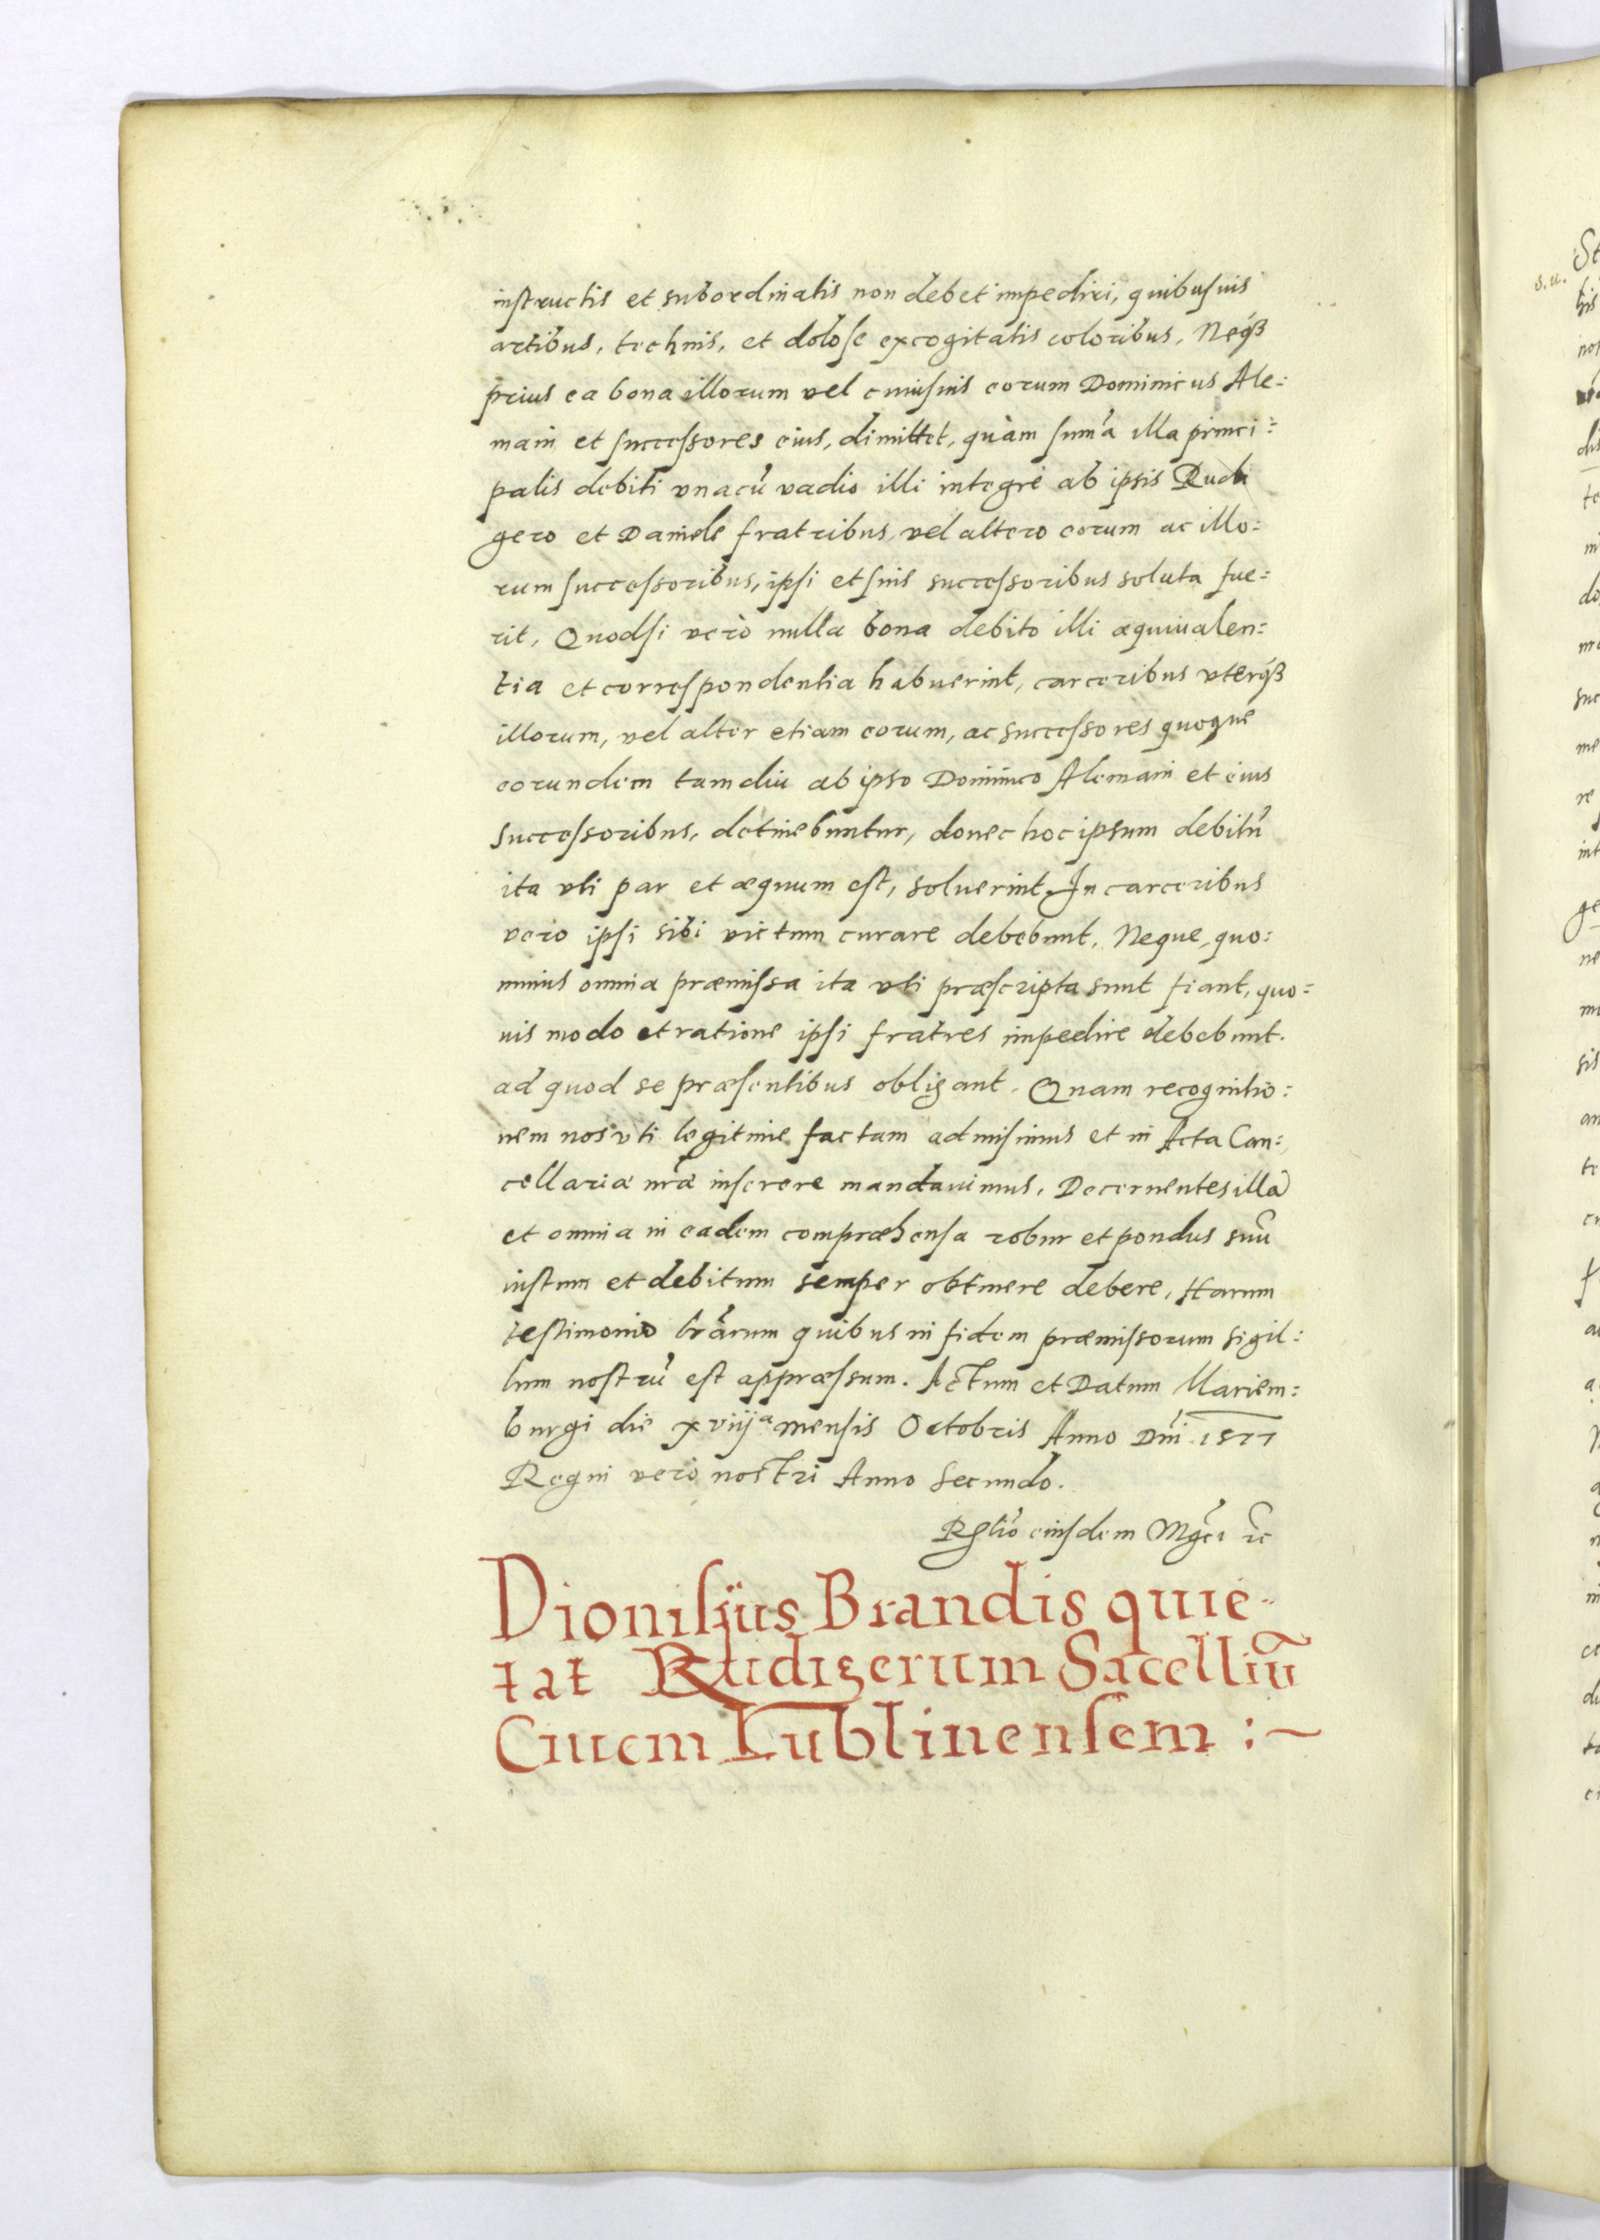 instructis et subordinatis non debet impediri, quibusuis
artibus, technis, et dolose excogitatis coloribus, Neq3
prius ea bona illorum vel cuiusuis eorum Dominicus Ale:
main et successores eius, dimittet, quàm sum̃a illa princi:
palis debiti vnacũ vadio illi integrè ab ipsis Rudi
gero et Daniele fratribus, vel altero eorum ac illo:
rum successoribus, ipsi et suis successoribus soluta fue:
rit, Quodsi verò nulla bona debito illi æquiualen:
tia et correspondentia habuerint, carceribus vterq3
illorum, vel alter etiam eorum, ac successores quoque
eorundem tamdiu ab ipso Dominico Alemain et eius
successoribus, detinebuntur, donec hoc ipsum debitũ
ita vti par et æquum est, soluerint. In carceribus
vero ipsi sibi victum curare debebunt. Neque, quo:
minus omnia præmissa ita vti præscripta sunt fiant, quo:
uis modo et ratione ipsi fratres impedire debebunt.
ad quod se præsentibus obligant. Quam recognitio:
nem nos vti legitime factam admisimus et in Acta Can:
cellariæ nr̃æ inserere mandauimus, Decernentes illã
et omnia in eadem compræhensa robur et pondus suũ
iustum et debitum semper obtinere debere, Harum
testimonio lrãrum quibus in fidem præmissorum sigil:
lum nostrũ est appræssum. Actum et Datum Mariem:
burgi die xviij a mensis Octobris Anno Dñi 1577
Regni vero nostri Anno Secundo.
Rel̃io eiusdem Mg̃ci &c
Dionisÿus Brandis quie-
tat Rudigerum Sacelliũ
Ciuem Lublinensem :~
s. u.